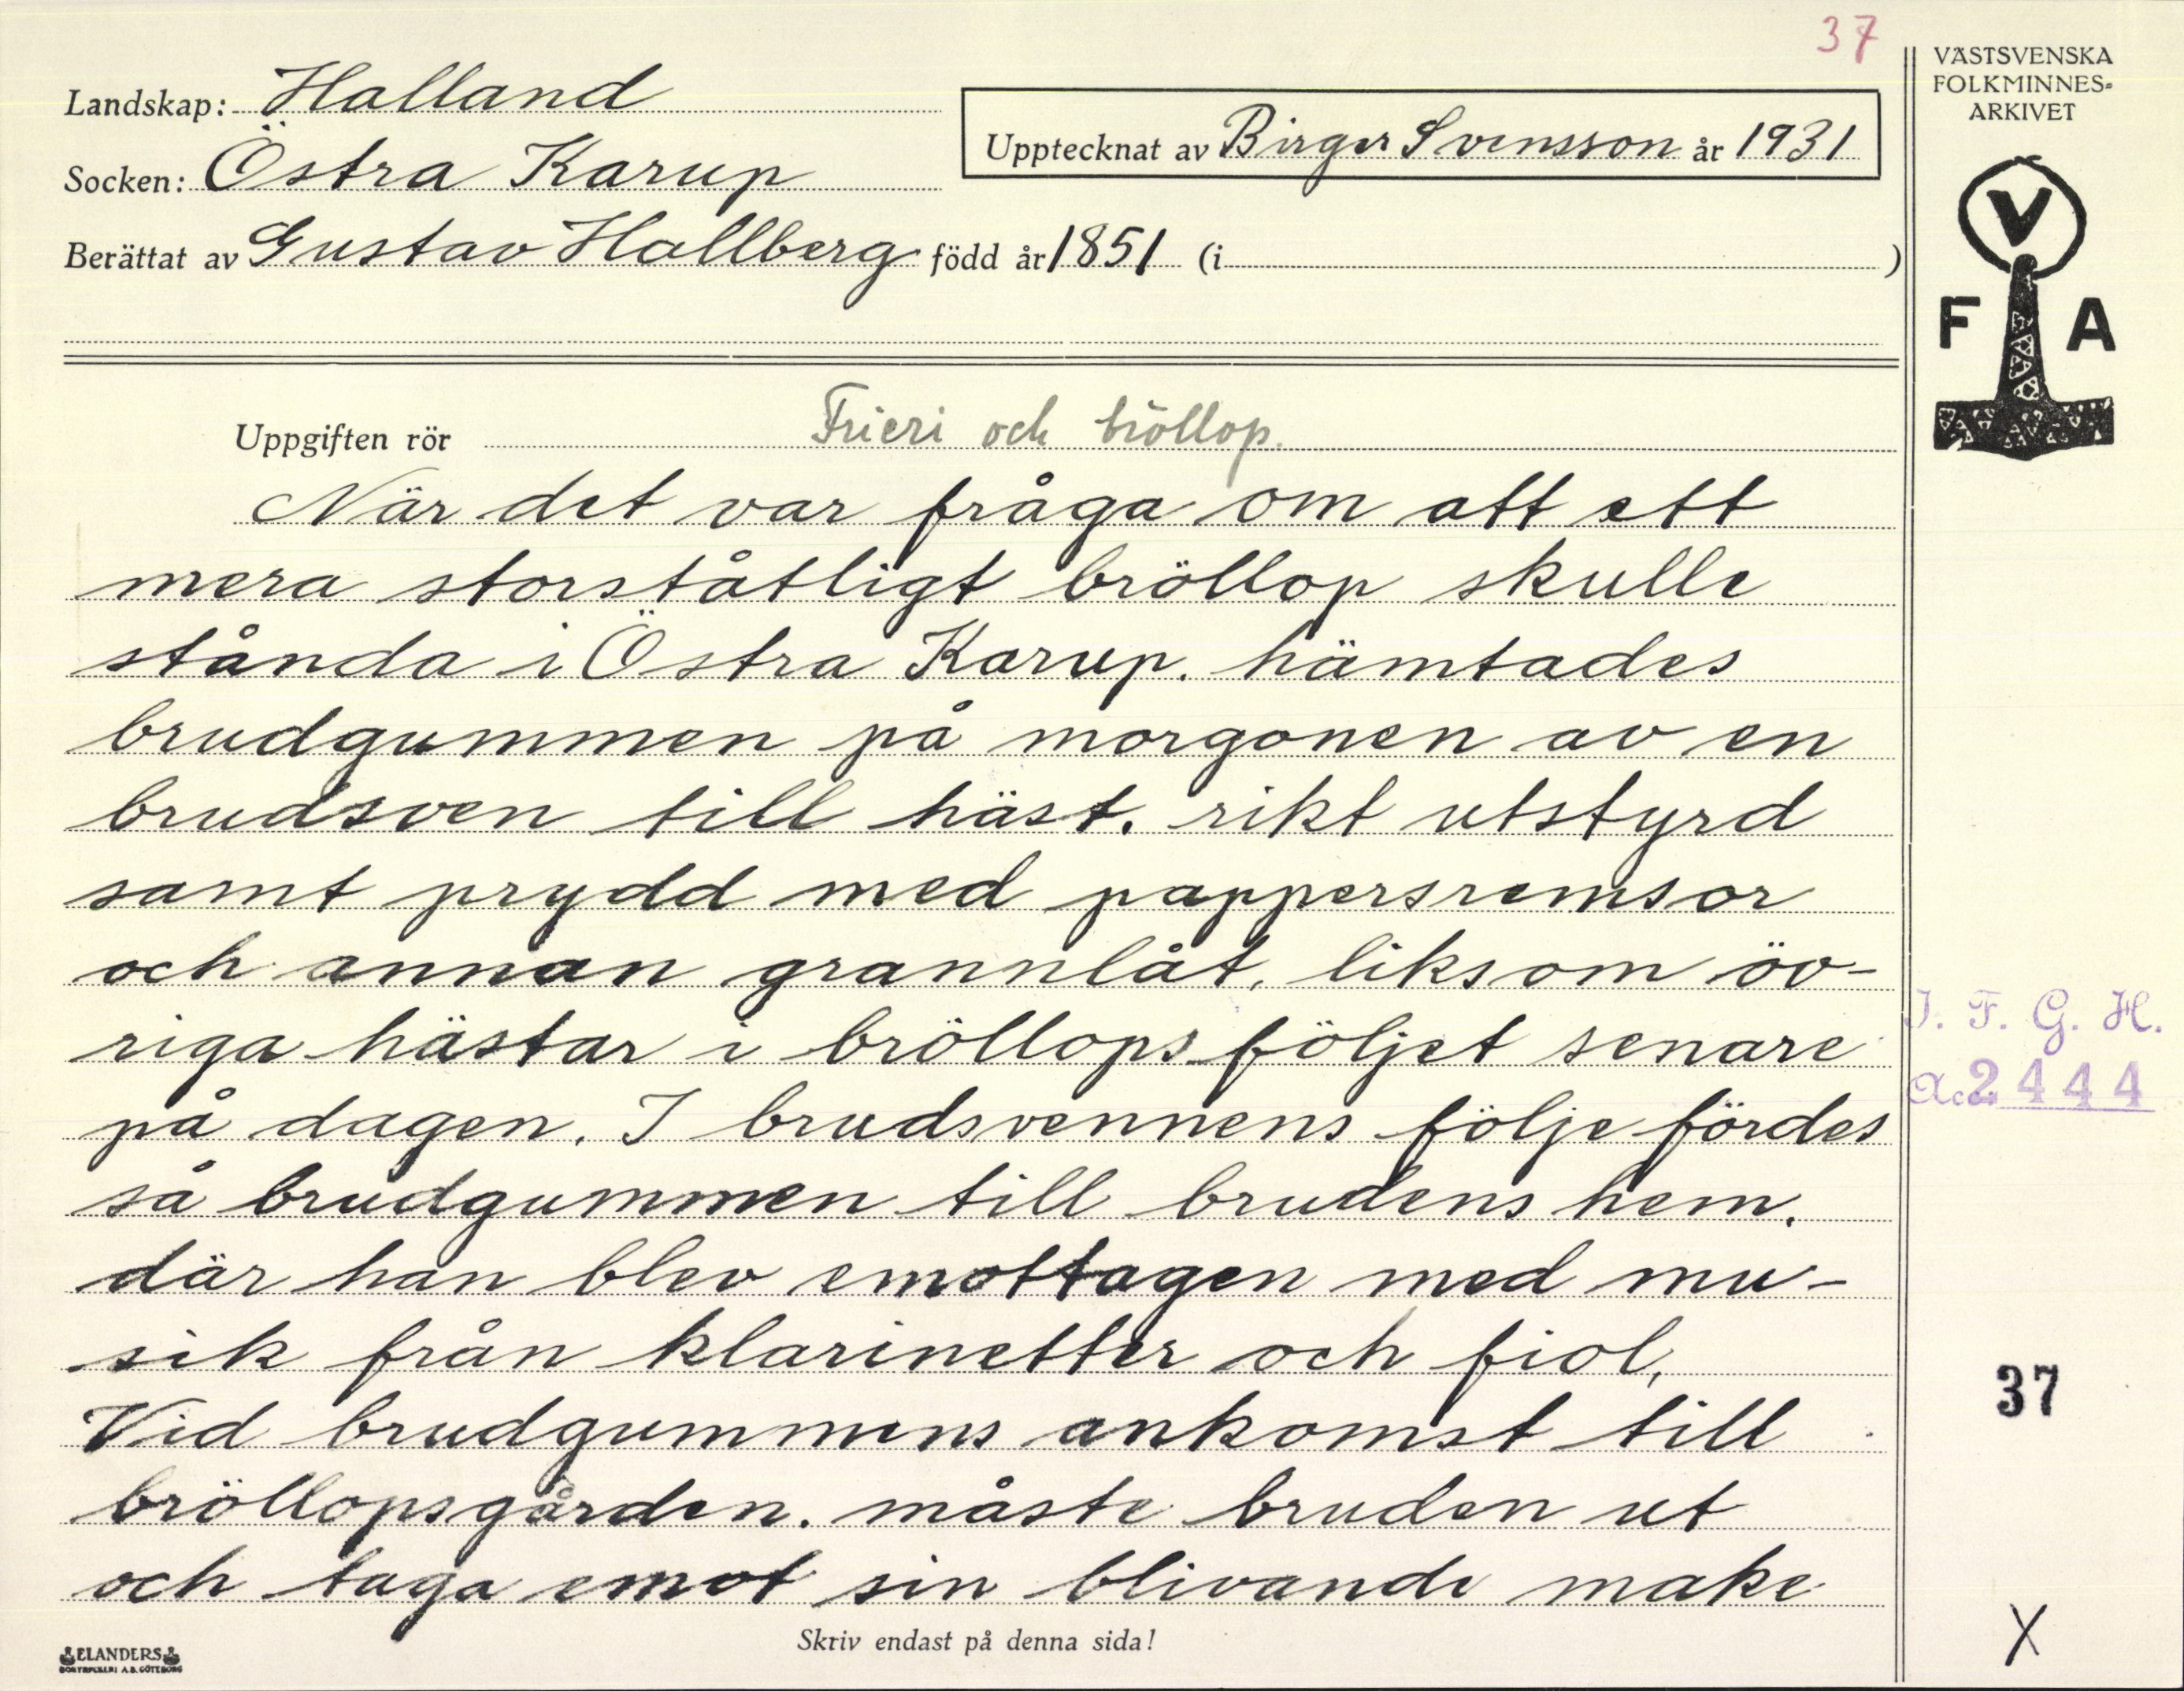 37
VÄSTSVENSKA
FOLKMINNES-
ARKIVET
Landskap: Halland
Upptecknat av Birger Svensson år 1931
Socken: Östra Karup
Berättat av Gustav Hallberg född år 1851 (i )
V
F A
Uppgiften rör Frieri och bröllop.
När det var fråga om att ett
mera storståtligt bröllop skulle
stånda i Östra Karup. hämtades
brudgummen på morgonen av en
brudsven till häst. rikt utstyrd
samt prydd med pappersremsor
och annan grannlåt, liksom öv-
riga hästar i bröllopsföljet senare
på dagen. I brudsvennens följe fördes
så brudgummen till brudens hem.
där han blev emottagen med mu-
sik från klarinetter och fiol,
Vid brudgummens ankomst till
bröllopsgården. måste bruden ut
och taga emot sin blivande make
I. F. G. H.
Acc. 2444
37
X
Skriv endast på denna sida!
ELANDERS
BOKTRYCKERI A.B. GÖTEBORG